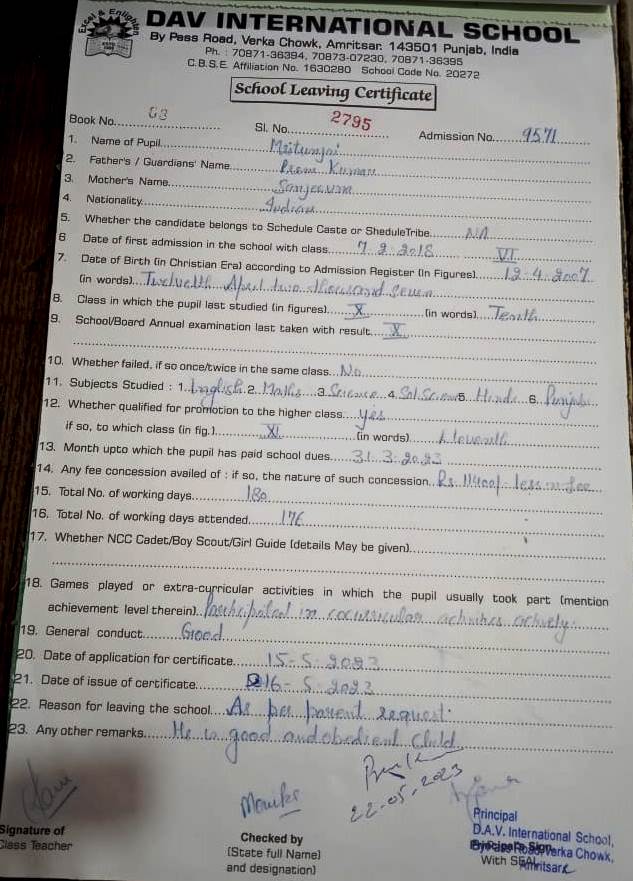 Excel & Enlighten
DAV INTERNATIONAL SCHOOL
By Pass Road, Verka Chowk, Amritsar. 143501 Punjab, India
Ph. : 70871-36394, 70873-07230, 70871-36395
C.B.S.E. Affiliation No. 1630280 School Code No. 20272
School Leaving Certificate
Book No. 63 Sl. No. 2795 Admission No. 9571
1. Name of Pupil Mritunjai
2. Father's / Guardians' Name Prem Kumar
3. Mother's Name
4. Nationality Indian
5. Whether the candidate belongs to Schedule Caste or SheduleTribe NA
6 Date of first admission in the school with class 7.2.2018 VI
7. Date of Birth (in Christian Era) according to Admission Register (in Figures) 12-4-2007
(in words) Twelveth April two thousand seven
8. Class in which the pupil last studied (in figures) X (in words) Tenth
9. School/Board Annual examination last taken with result X
10. Whether failed, if so once/twice in the same class No
11. Subjects Studied : 1. English 2. Maths 3. Science 4. Sol.Science 5. Hindi 6. Punjabi
12. Whether qualified for promotion to the higher class yes
if so, to which class (in fig.) XI (in words) Eleventh
13. Month upto which the pupil has paid school dues 31.3.2023
14. Any fee concession availed of : if so, the nature of such concession Rs. less in fee
15. Total No. of working days 180
16. Total No. of working days attended 176
17. Whether NCC Cadet/Boy Scout/Girl Guide (details May be given)
18. Games played or extra-curricular activities in which the pupil usually took part (mention
achievement level therein) Participated in cocurricular activities actively
19. General conduct Good
20. Date of application for certificate 15-5-2023
21. Date of issue of certificate 16-5-2023
22. Reason for leaving the school As per parent request.
23. Any other remarks He is good and obedient child
22.05.2023
Signature of
Class Teacher
Monika
Checked by
(State full Name)
and designation)
Principal
D.A.V. International School,
By Pass Road, Verka Chowk,
Amritsar
Principal's Sign.
With SEAL